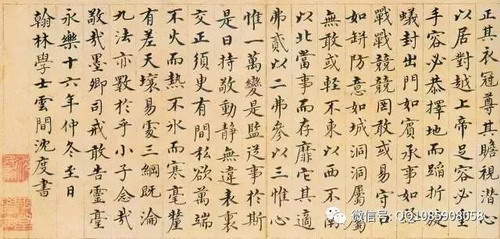 正其衣冠尊其瞻視潛心
以居對越上帝足容必重
手容必恭擇地而蹈折旋
蟻封出門如賓承事如祭
戰戰兢兢罔敢或易守口
如缾防意如城洞洞屬屬
無敢或輕不東以西不南
以北當事而存靡它其適
弗貳以二弗參以三惟心
惟一萬變是監從事於斯
是曰持敬動靜無違表裏
交正須臾有間私欲萬端
不火而熱不冰而寒毫釐
有差天壤易處三綱既淪
九法亦斁於乎小子念哉
敬哉墨卿司戒敢告靈臺
永樂十六年仲冬至日
翰林學士雲間沈度書
微信号: QQ1985908058